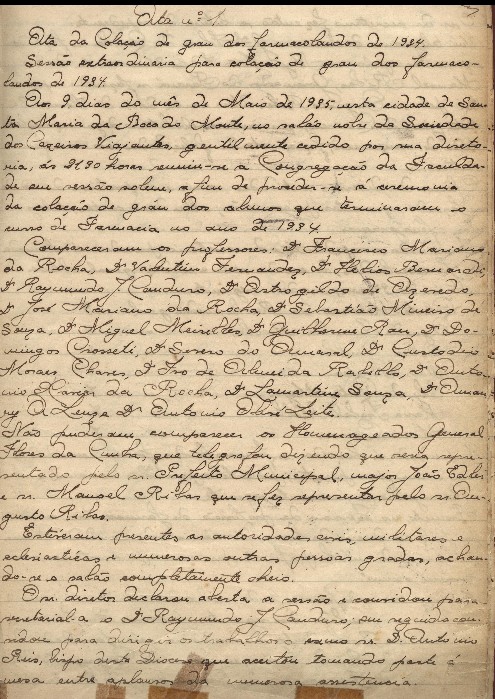 Ata nº 1
Ata da Colação de grau dos farmacolandos de 1934.
Sessão extraordinaria para colação de grau dos farmaco-
landos de 1934.
Aos 9 dias do mês de Maio de 1935, nesta cidade de San-
ta Maria da Boca do Monte, no salão nobre da Sociedade
dos Caxeiros Viajantes, gentilmente cedido por sua directo-
ria, ás 21,30 horas reuniu-se a Congregação da Faculda-
de em sessão solene, a fim de proceder-se á ceremonia
da colação de gráu dos alunos que terminaram o
curso de Farmacia no ano de 1934.
Compareceram os professores: Dr Francisco Mariano
da Rocha, Dr Valentim Fernandez, Dr Helios Bernardi,
Dr Raymundo J. Cauduro, Dr Astrogildo de Azevedo,
Dr José Mariano da Rocha, Dr Sebastião Mineiro de
Souza, Dr Miguel Meirelles, Dr Guilherme Rau, Dr Do-
mingos Crossetti, Dr Severo do Amaral, Dr Custodio
Moraes Chaves, Dr Ivo de da Dr Anto-
nio Xavier da Rocha, Dr Lamartine Souza, Dr Amau-
ry A. Lenz e Dr Antonio Leite.
Não puderam comparecer os Homenageados General
Flores da Cunha, que telegrafou dizendo que seria repre-
sentado pelo sr. Prefeito Municipal, major João
e sr. Manoel Ribas que se fez representar pelo sr Au-
gusto Ribas.
Estiveram presentes as autoridades civis, militares e
eclesiasticas e numerosas outras pessoas gradas, achan-
do-se o salão completamente cheio.
O sr. diretor declarou aberta a sessão e convidou para
secretarial-a o Dr Raymundo J. Cauduro, em seguida con-
vidou para dirigir os trabalhos o exmo sr. D. Antonio
Reis, bispo desta Diocese que aceitou tomando parte á
mesa entre aplausos da numerosa assistencia.